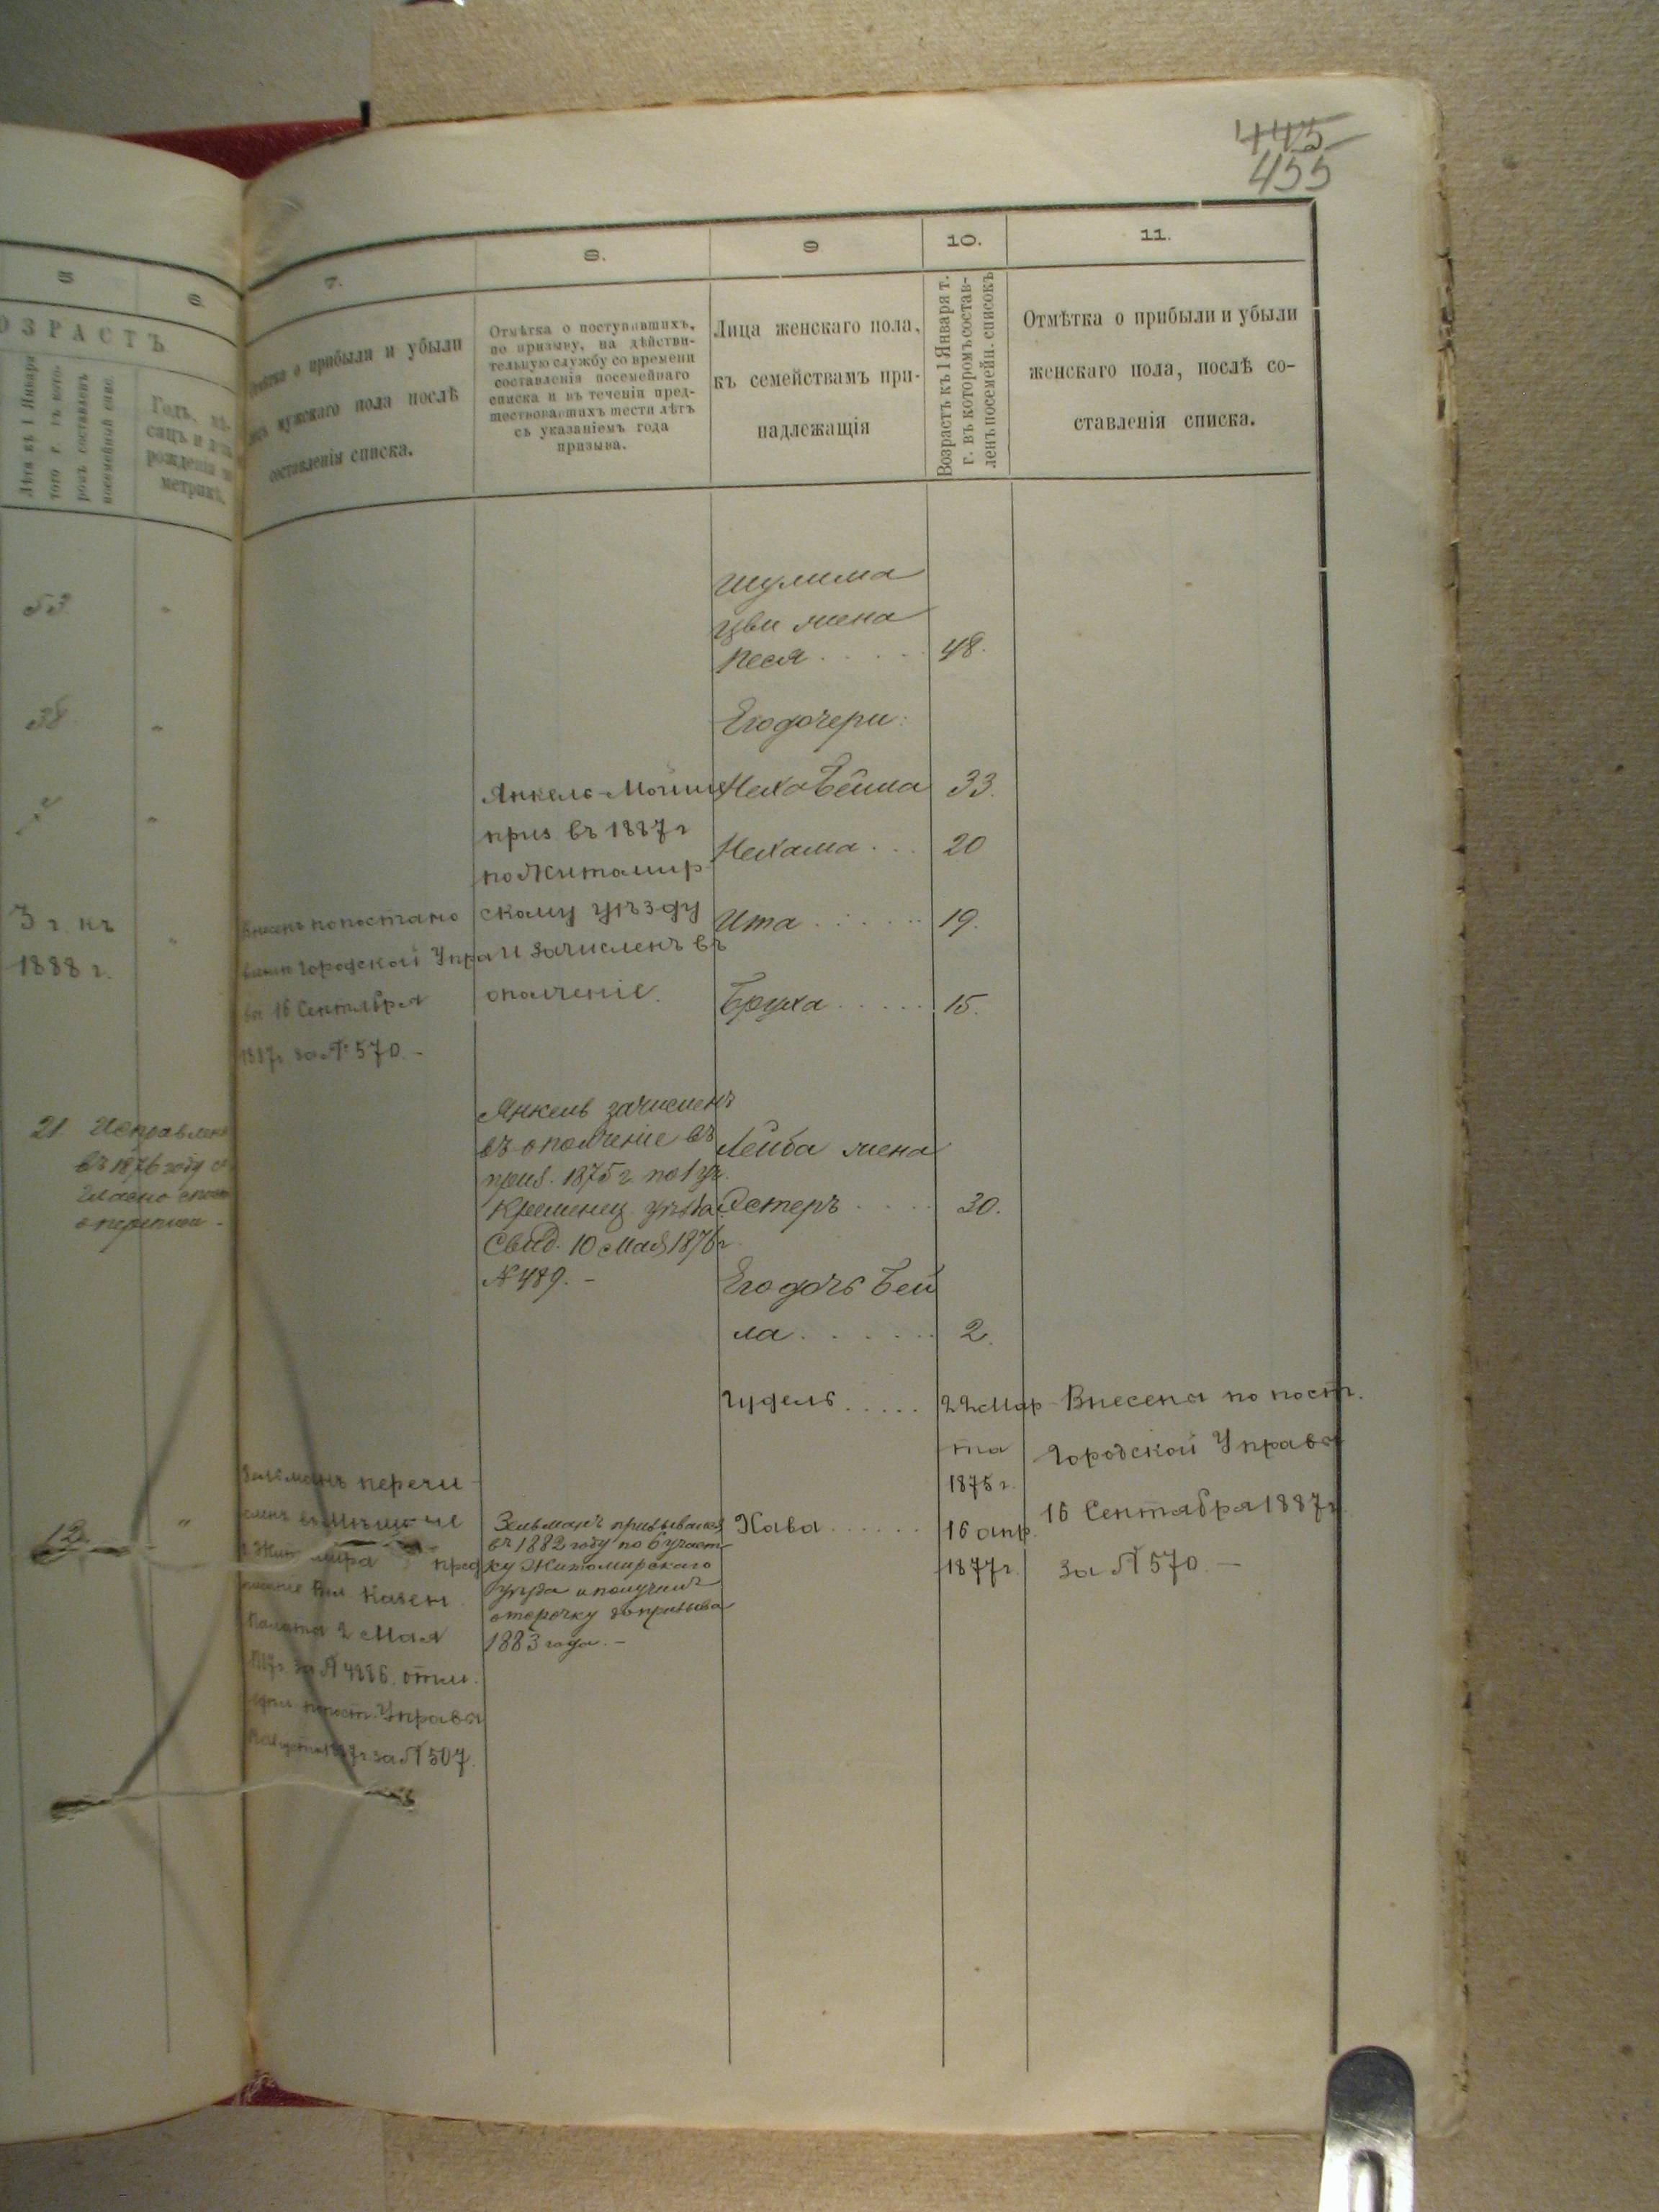 445
455
5
6.
7.
8.
9
10.
11.
ОЗРАСТЪ
Лѣта къ 1 Января
того г. въ кото-
ромъ составленъ
посемейный спис.
Годъ, мѣ-
сяцъ и день
рожденія по
метрикѣ.
о прибыли и убыли
мужскаго пола послѣ
составленія списка.
Отмѣтка о поступившихъ,
по призыву, на дѣйстви-
тельную службу со времени
составленія посемейнаго
списка и въ теченіи пред-
шествовавшихъ шести лѣтъ
съ указаніемъ года
призыва.
Лица женскаго пола,
къ семействамъ при-
надлежащія
Возрастъ къ 1 Января т.
г. въ которомъ состав-
ленъ посемейн. списокъ
Отмѣтка о прибыли и убыли
женскаго пола, послѣ со-
ставленія списка.
53
38
3 г. къ
1888 г.
21. Исправлено
въ 1876 году со
гласно
12.
Внесенъ по постано
Городской Упра
16 Сентября
1887г за № 570. –
Зельманъ перечи
сленъ въ
пред
Казен.
Палата 2 Мая
за № 4226. отм.
по пост. Управы
за № 507.
Янкель-Мойше
приз въ 1887 г
по Житомир
скому уѣзду
и зачисленъ въ
ополченіе.
Янкель зачисленъ
въ ополченіе въ
приз. 1875 г. по 1 уч.
Кременец. уѣзда
Свид. 10 Мая 1876 г
№ 489. –
Зельманъ призывался
въ 1882 году по 6 участ-
ку Житомирскаго
уѣзда и получилъ
отсрочку до призыва
1883 года. –
Шулима
Цви жена
Песя . . . . . 48.
Его дочери:
Неха Бейла 33.
Нехама . . . 20
Ита . . . . . . 19.
Бруха . . . . . 15.
Лейба жена
Эстеръ . . . . 30.
Его дочь Бей
ла . . . . . . 2.
Гудель . . . . . 22 Мар
та
1875 г.
Хава . . . . . . 16 апр.
1877 г.
Внесена по пост.
Городской Управы
16 Сентября 1887 г.
за № 570. –